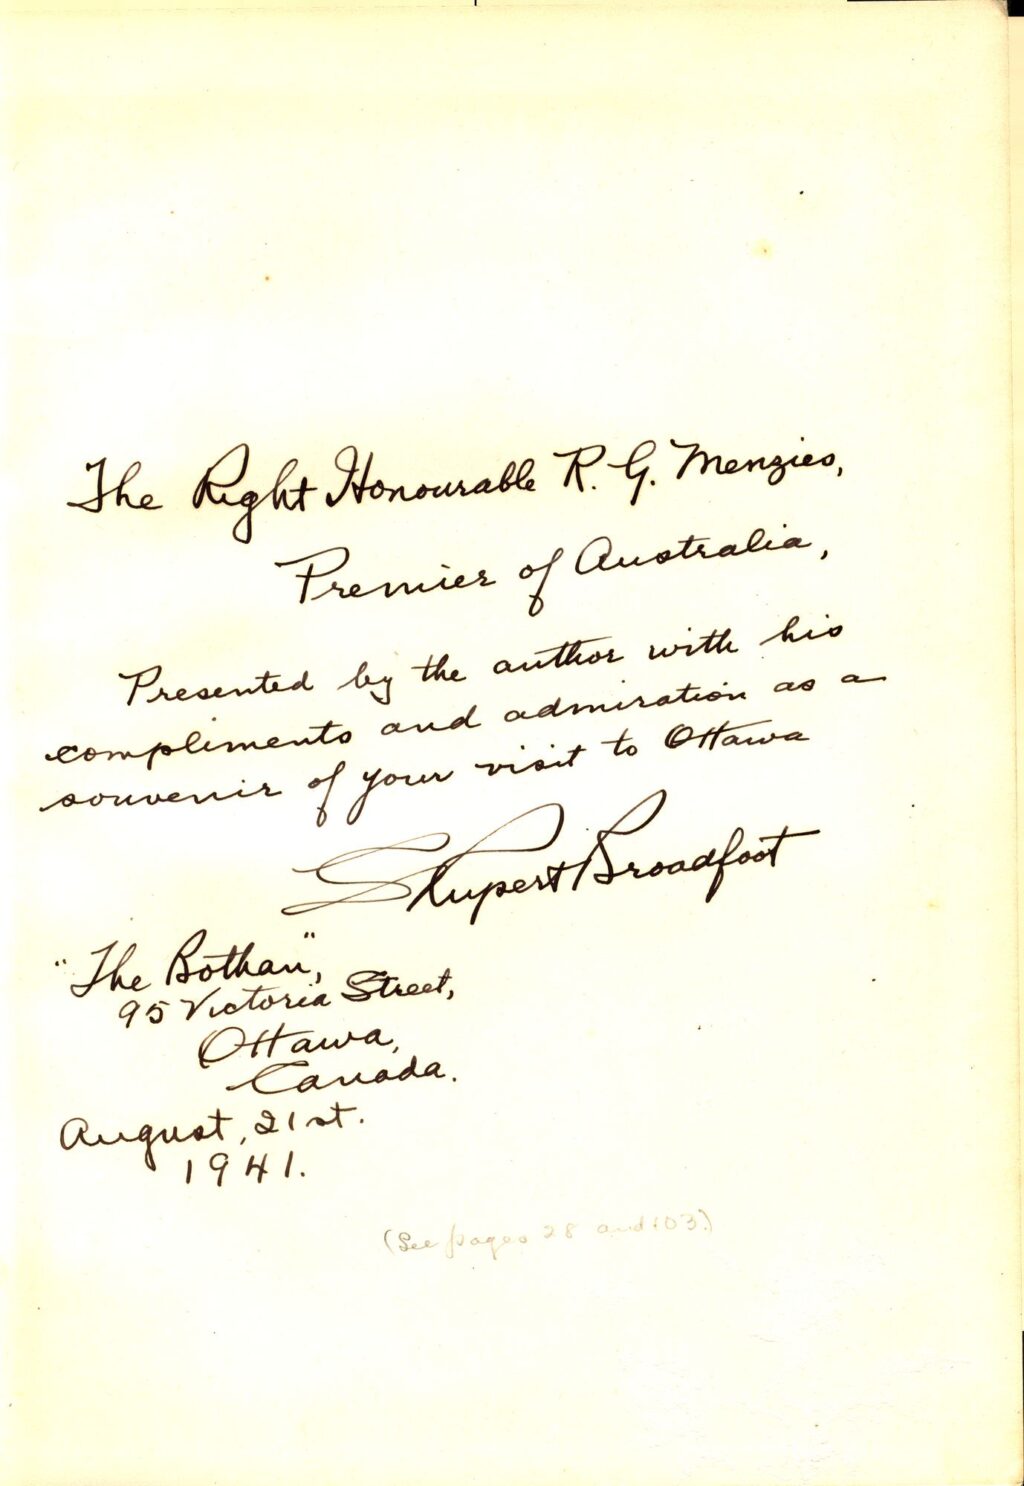 The Right Honourable R. G. Menzies,
Premier of Australia,
Presented by the author with his
compliments and admiration as a
souvenir of your visit to Ottawa
S Rupert Broadfoot
"The Bothan",
95 Victoria Street,
Ottawa,
Canada.
August, 21st.
1941.
(See pages 28 and 103.)